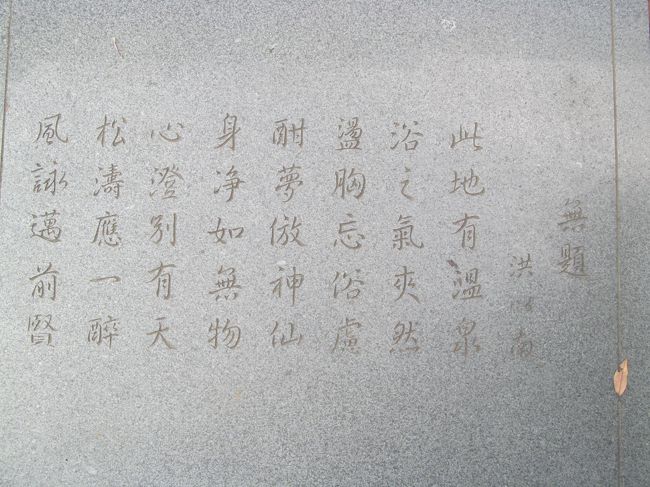 無題
洪以南
此地有溫泉
浴之氣爽然
盪胸忘俗慮
酣夢倣神仙
身净如無物
心澄別有天
松濤應一醉
風詠邁前賢